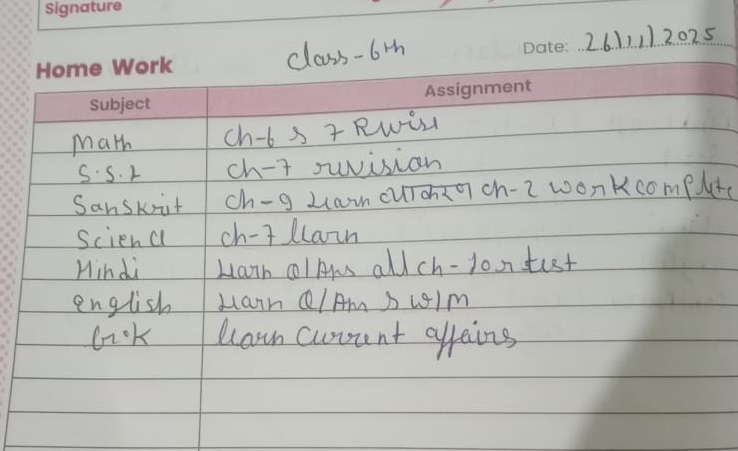 Signature
Class-6th
Date: 26/11/2025
Home Work
Subject Assignment
Math Ch-6 & 7 Rwise
S.S.t Ch-7 ruvision
Sanskrit Ch-9 learn व्याकरण Ch-2 work complete
Science ch-7 learn
Hindi learn Q/Ans all ch- for test
english learn Q/Ans & w/m
G.K learn current affairs